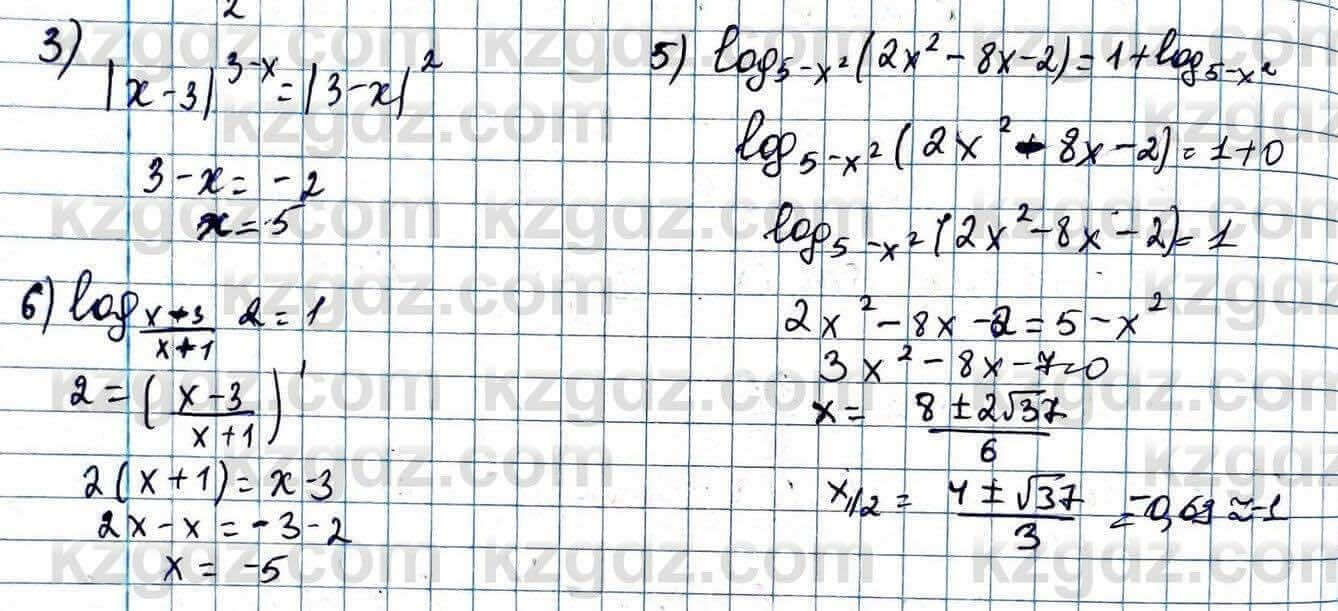 2
3) |x-3|^{3-x} = |3-x|^2
3-x = -2
x = 5
6) log_{\frac{x-3}{x+1}} 2 = 1
2 = (\frac{x-3}{x+1})^1
2(x+1) = x-3
2x-x = -3-2
x = -5
5) log_{5-x^2}(2x^2-8x-2) = 1+log_{5-x^2}
log_{5-x^2}(2x^2-8x-2) = 1+0
log_{5-x^2}(2x^2-8x-2) = 1
2x^2-8x-2 = 5-x^2
3x^2-8x-7=0
x = \frac{8±2√37}{6}
x_{1/2} = \frac{4±√37}{3} = -0,69 ≈ -1
kzgdz.com